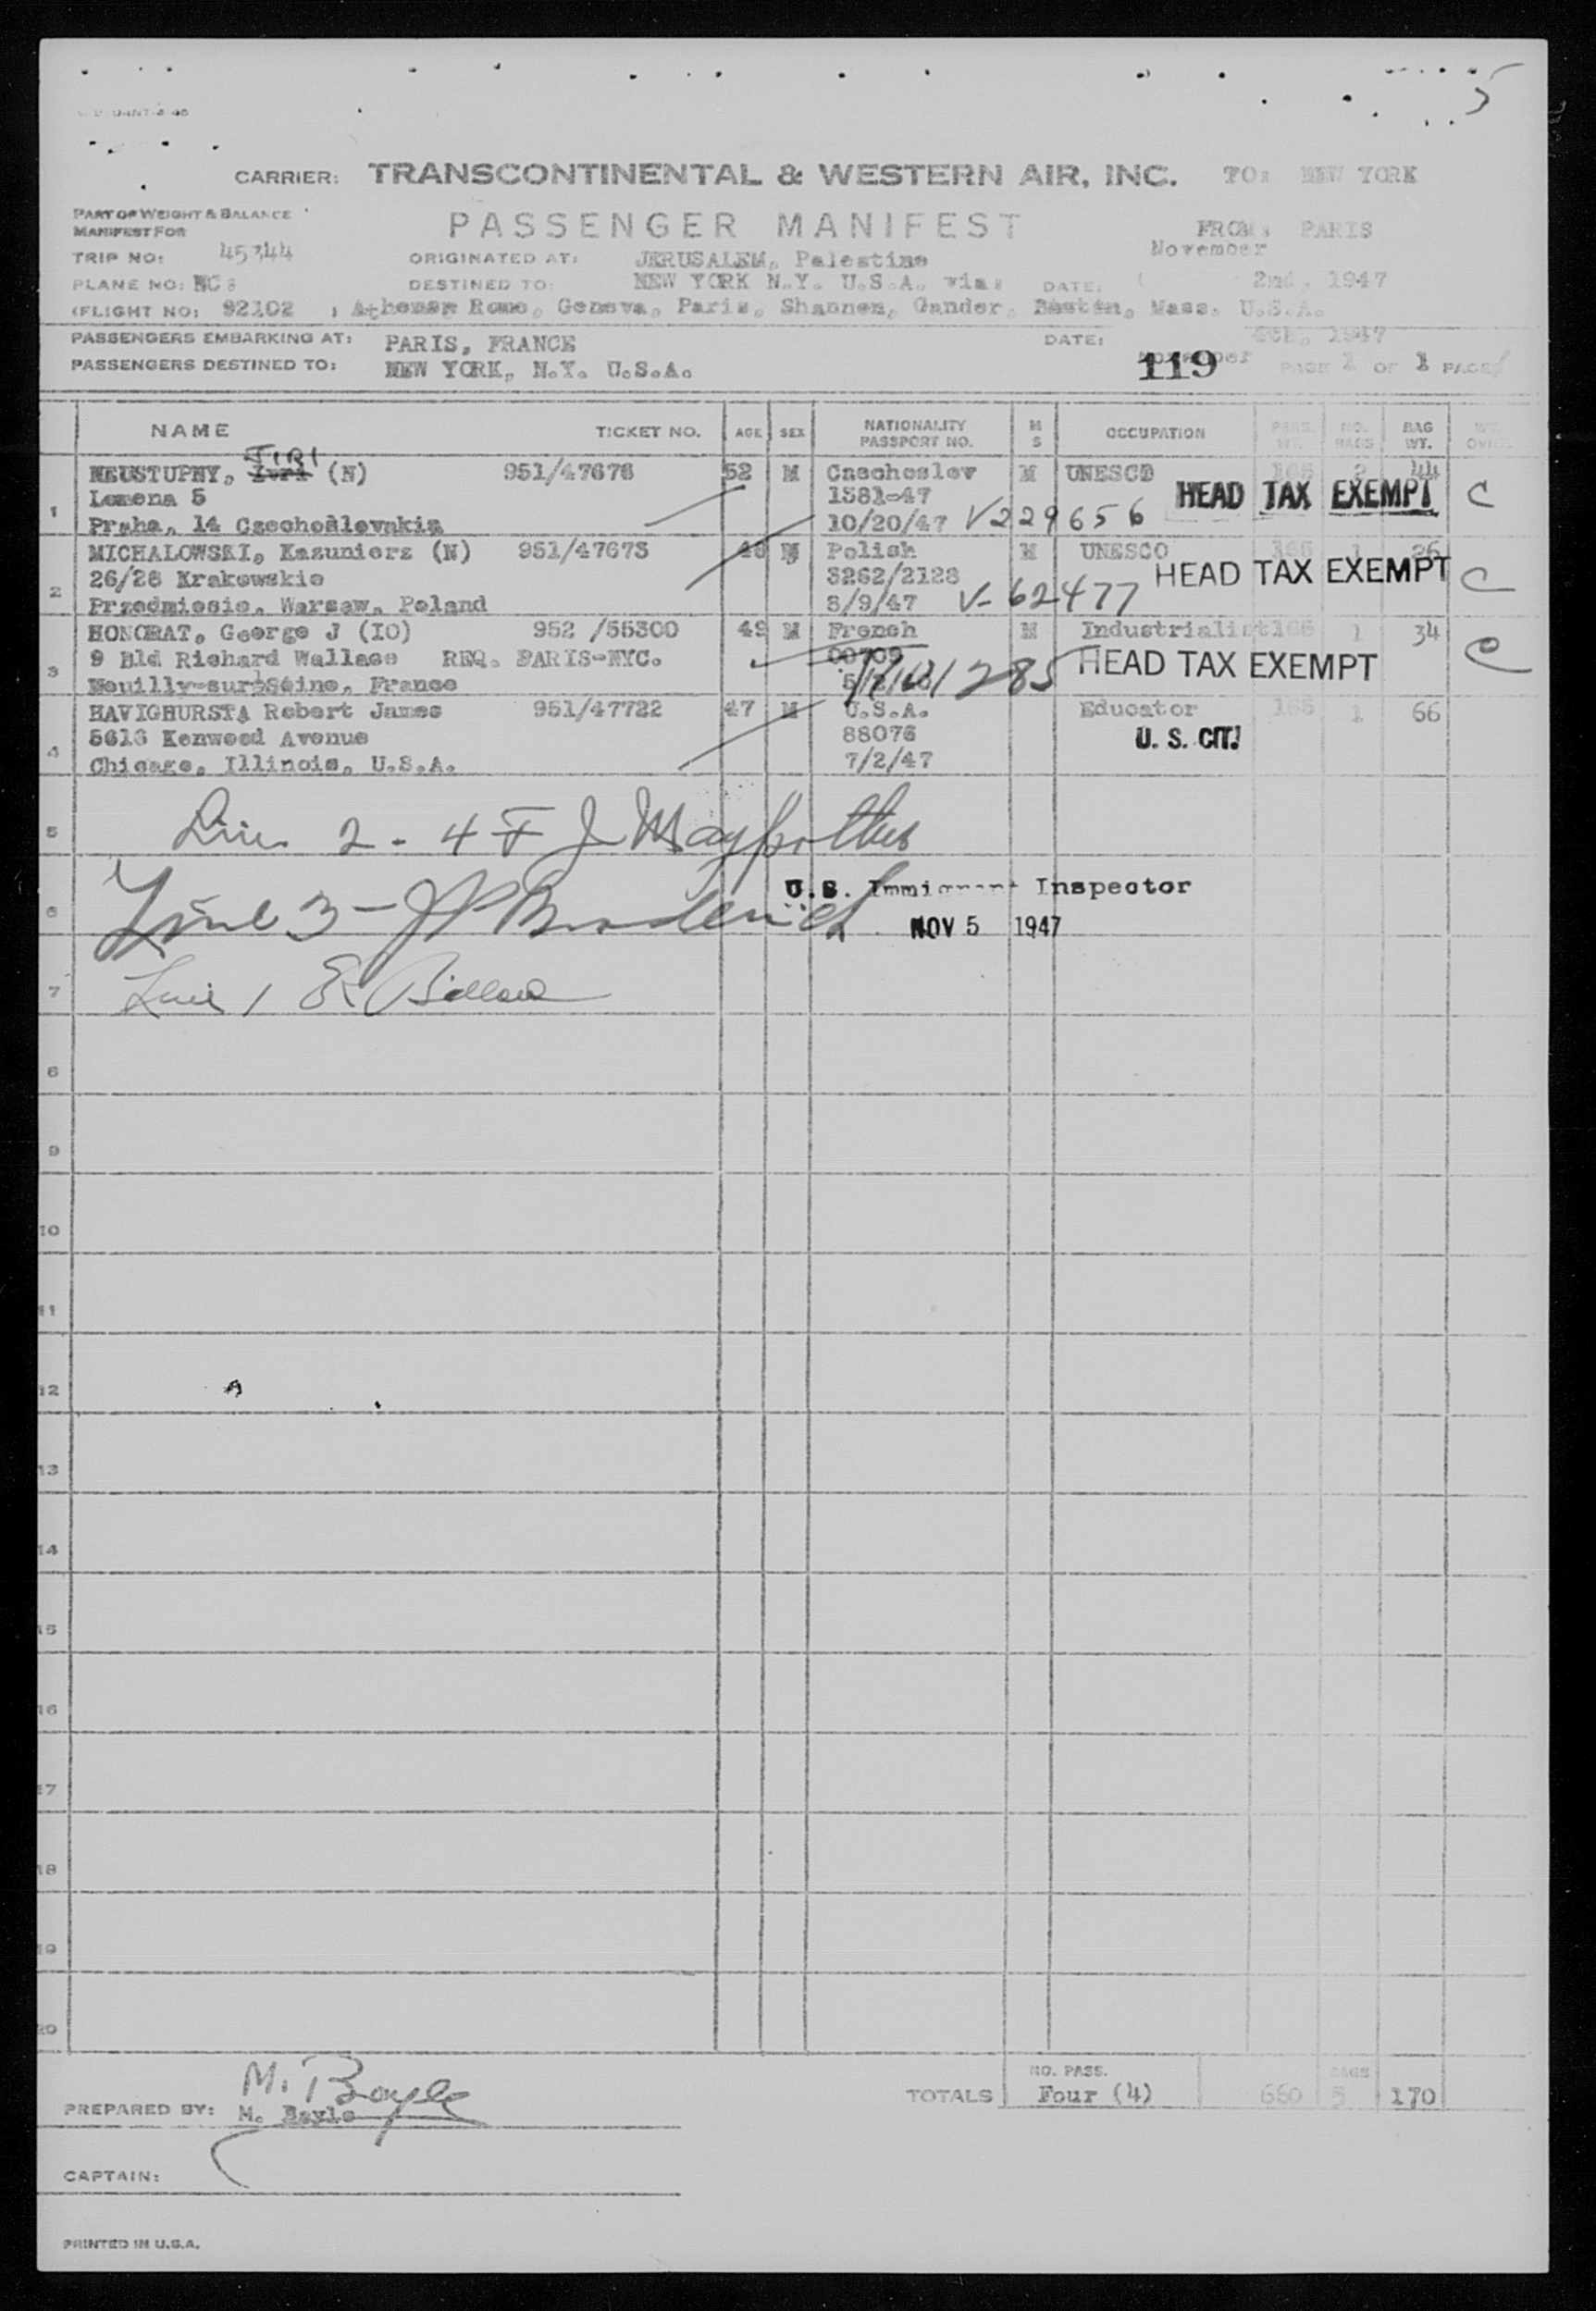 5
CARRIER: TRANSCONTINENTAL & WESTERN AIR, INC. TO: NEW YORK
PART OF WEIGHT & BALANCE
MANIFEST FOR
PASSENGER MANIFEST
FROM: PARIS
November
TRIP NO: 45344 ORIGINATED AT: JERUSALEM, Palestine
PLANE NO: NC: DESTINED TO: NEW YORK N.Y. U.S.A. via: DATE: 2nd, 1947
(FLIGHT NO: 92102 ) Athens, Rome, Geneva, Paris, Shannon, Gander, Boston, Mass. U.S.A.
PASSENGERS EMBARKING AT: PARIS, FRANCE DATE: 1947
PASSENGERS DESTINED TO: NEW YORK, N.Y. U.S.A. 119 PAGE 1 OF 1 PAGES
NAME TICKET NO. AGE SEX NATIONALITY PASSPORT NO. M S OCCUPATION PASS. WT. NO. BAGS BAG WT.
JIRI
1 NEUSTUPNY, (N) 951/47676 52 M Czechoslov M UNESCO 165 2 44
Lomena 5 1581-47 HEAD TAX EXEMPT C
Praha, 14 Czechoslovakia 10/20/47 V229656
2 MICHALOWSKI, Kazunierz (N) 951/47673 M Polish M UNESCO 165 1 26
26/28 Krakowskie 3262/2128 HEAD TAX EXEMPT C
Przedmiesie, Warsaw, Poland 8/9/47 V-62477
3 HONORAT, George J (IO) 952 /55300 49 M French M Industrialist 165 1 34
9 Bld Richard Wallace REQ. PARIS-NYC. 00709 HEAD TAX EXEMPT C
Neuilly-sur-Seine, France
4 HAVIGHURST, Robert James 951/47722 47 M U.S.A. Educator 165 1 66
5613 Kenwood Avenue 88076 U. S. CIT.
Chicago, Illinois, U.S.A. 7/2/47
5 Line 2 - 4
6 Line 3 - U.S. Immigrant Inspector
NOV 5 1947
7 Line 1
8
9
10
11
12
13
14
15
16
17
18
19
20
M. Boyle
PREPARED BY: M. Boyle
TOTALS NO. PASS. Four (4) 660 BAGS 5 170
CAPTAIN:
PRINTED IN U.S.A.